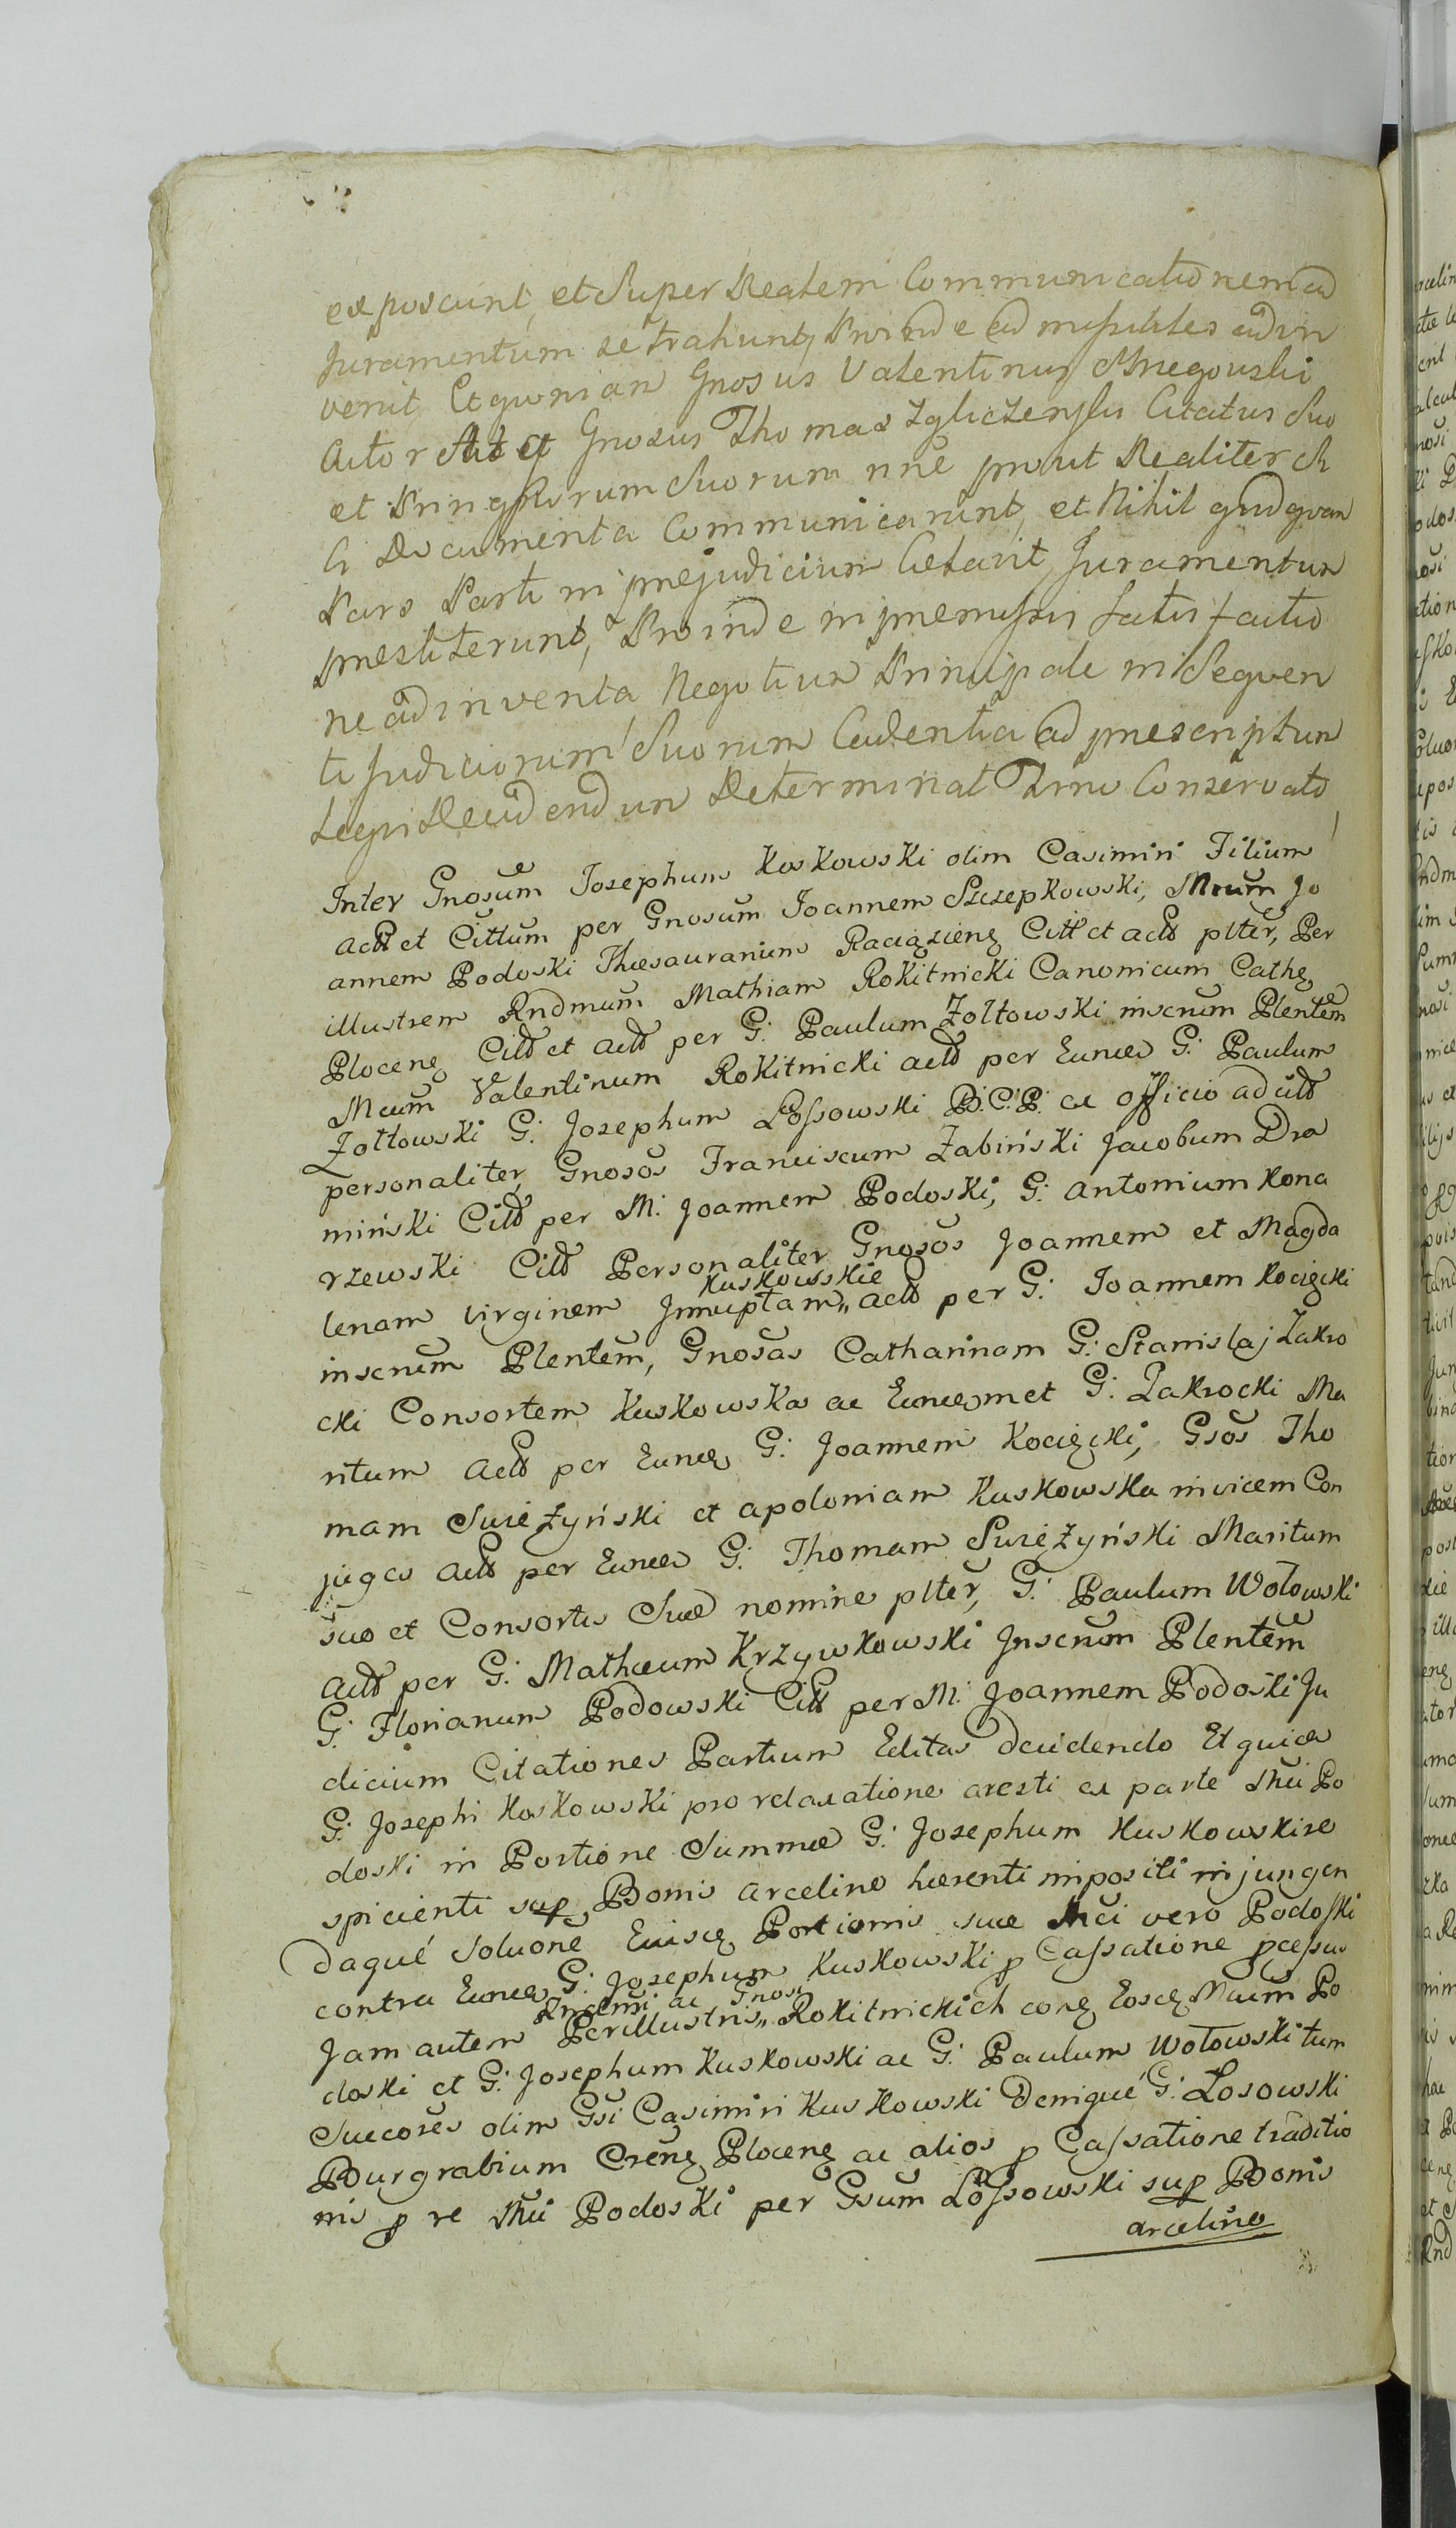 exposcunt, et Super Realem Communicationem ad
Juramentum se trahunt, Proinde admissibiles adin
venit Et quoniam Gnosus Valentinus Mnegowski
Actor Gnosus Thomas Zgliczenski Citatus Suo
et Suorum nñe prout Realiter
Documenta Communicarunt, et Nihil quidquam
Pars Parti in prejudicium Celavit, Juramentum
prestiterunt, Proinde in premissis satisfactio
ne adinventa Negotium Principale in Sequen
ti Judiciorum Suorum Cadentia ad prescriptum
Legis Decidendum Determinat Trno Conservato,
Inter Gnosum Josephum Koskowski olim Casimiri Filium
actt et Cittum per Gnosum Joannem Szczepkowski, Mcum Jo
annem Podoski Thesaurarium Raciązieng Citt et actt plter, Per
illustrem Rndmum Mathiam Rokitnicki Canonicum Cathe
Ploceng Citt et actt per G: Paulum Żołtowski inscrum Plentem
Mcum Valentinum Rokitnicki actt per Eunde G: Paulum
Żołtowski G: Josephum Lossowski B: C: P: ex officio ad citt
personaliter, Gnosos Franciscum Żabiński Jacobum Dra
miński Citt per M: Joannem Podoski, G: Antonium Kona
rzewski Citt Personaliter Gnosos Joannem et Magda
lenam Virginem Innuptam Kuskowskie actt per G: Joannem Kocięcki
inscrum Plentem, Gnosas Catharinam G: Stanislaj Zakro
cki Consortem Kuskowska ac Eundemet G: Zakrocki Ma
ritum actt per Eunde G: Joannem Kocięcki, Gsos Tho
mam Swiężyński et Apoloniam Kuskowska invicem Con
juges actt per Eunde G: Thomam Swiężyński Maritum
suo et Consortis Suae nomine plter, G: Paulum Wołowski
actt per G: Mathaeum Krzywkowski Inscrum Plentem
G: Florianum Podowski Citt per M: Joannem Podoski Ju
dicium Citationes Partium Editas decidendo Et quide
G: Josephi Koskowski pro relaxatione aresti ex parte Mci Po
doski in Portione Summae G: Josephum Kuskowski re
spicienti sup Bonis Arcelino haerenti impositi injungen
daque Soluone Euisdg Portionis suae Mci vero Podoski
contra Eunde G: Josephum Kuskowski p Cassatione pcessus
Jam autem Perillustris Rndmi ac Gnosi Rokitnickich coneg Eosdg Mcum Po
doski et G: Josephum Kuskowski ac G: Paulum Wołowski tum
Succores olim Gsi Casimiri Kuskowski Denique G: Losowski
Burgrabium Creng Ploceng ac alios p Cassatione traditio
nis p re Mci Podoski per Gsum Lossowski sup Bonis
Arcelino